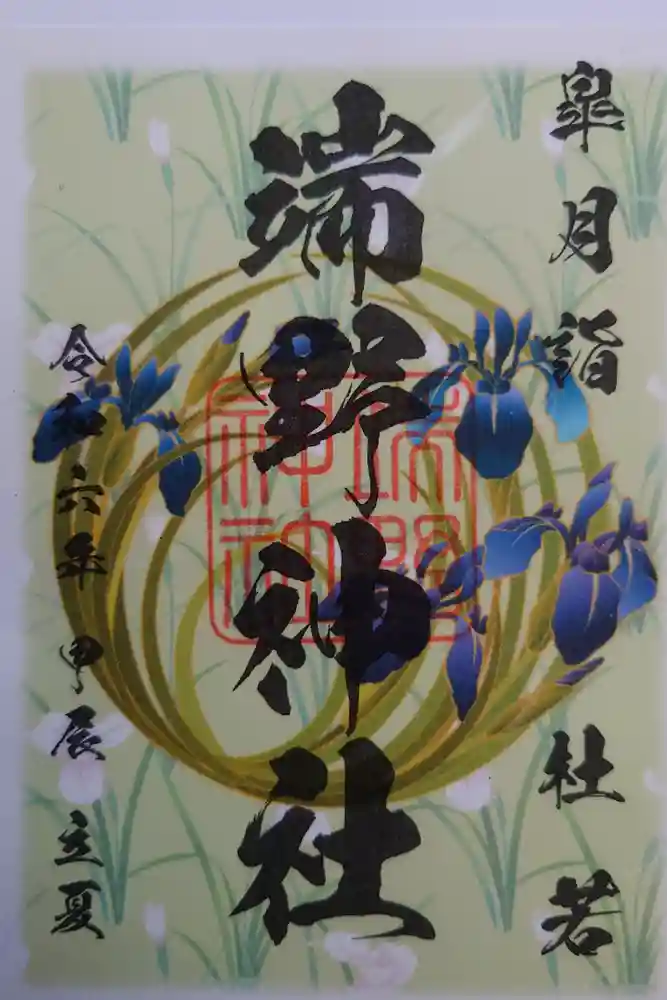 皐月詣
杜若
端野神社
令和六年 甲辰 立夏
端野神社